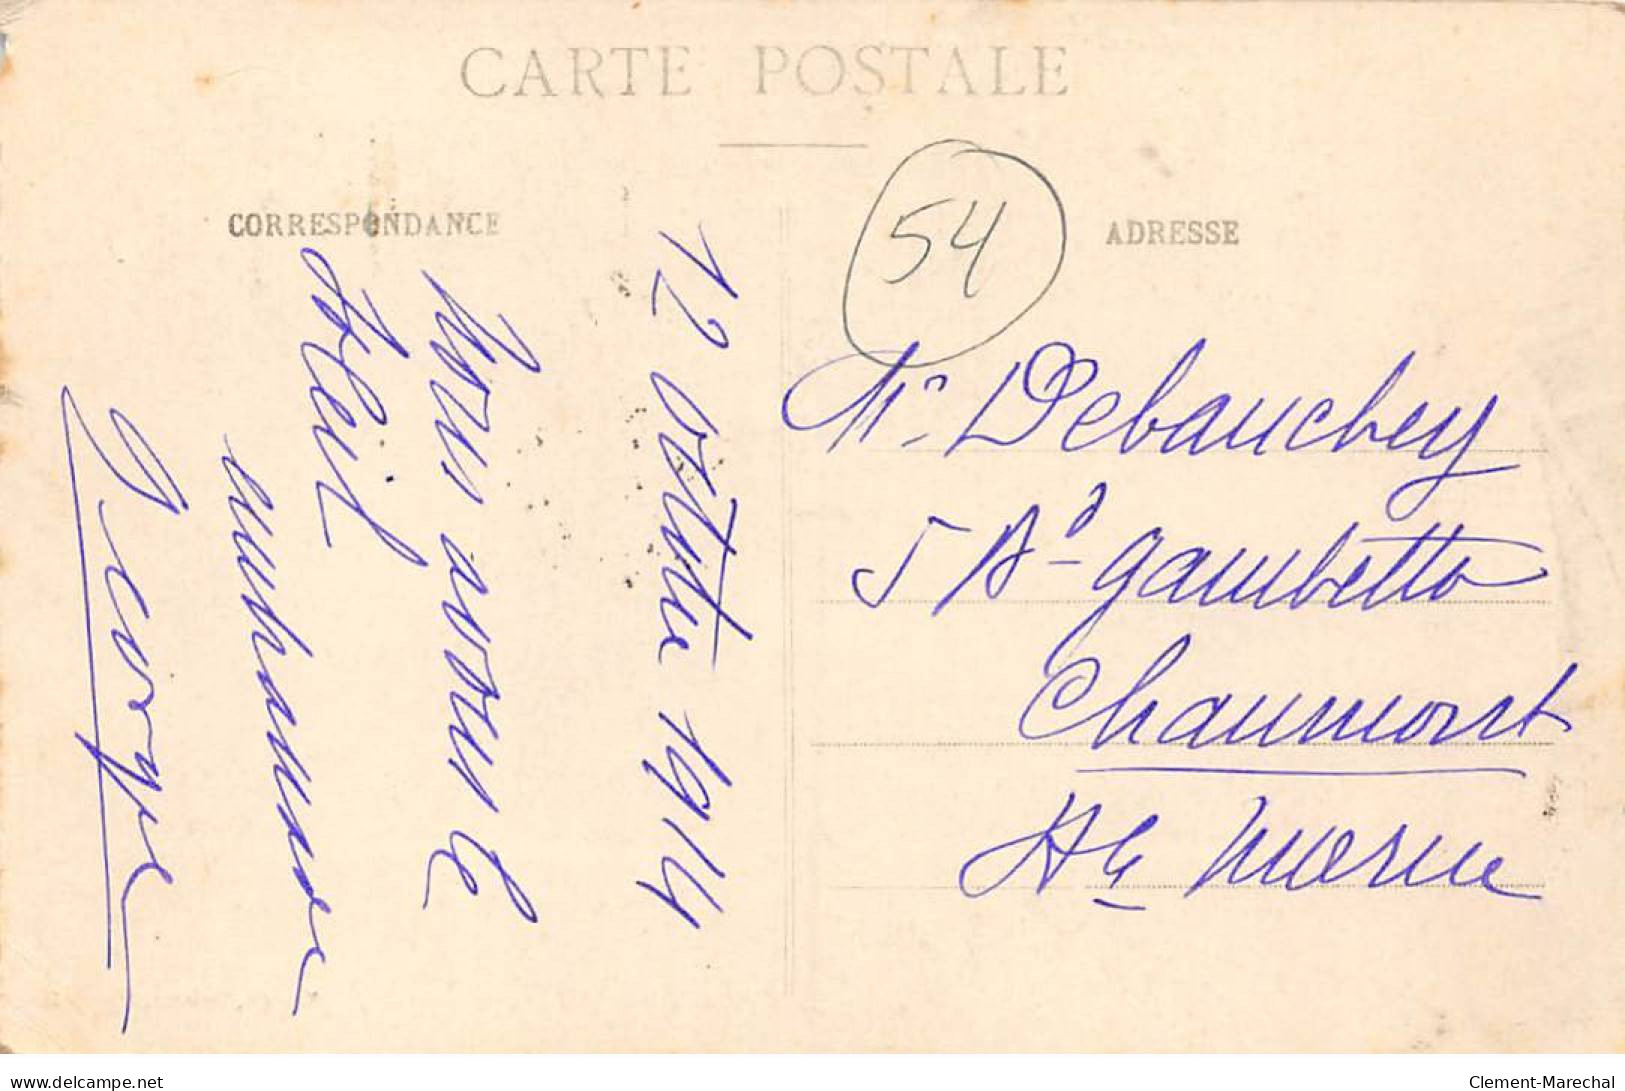 CARTE POSTALE
CORRESPONDANCE
ADRESSE
54
12 octobre 1914
Nous avons le
soleil
George
Mr Debauchey
5 Bd Gambetta
Chaumont
Hte Marne
www.delcampe.net
Clement-Marechal